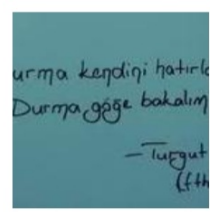 urma kendini hatırla
Durma, göğe bakalım
— Turgut
(fth